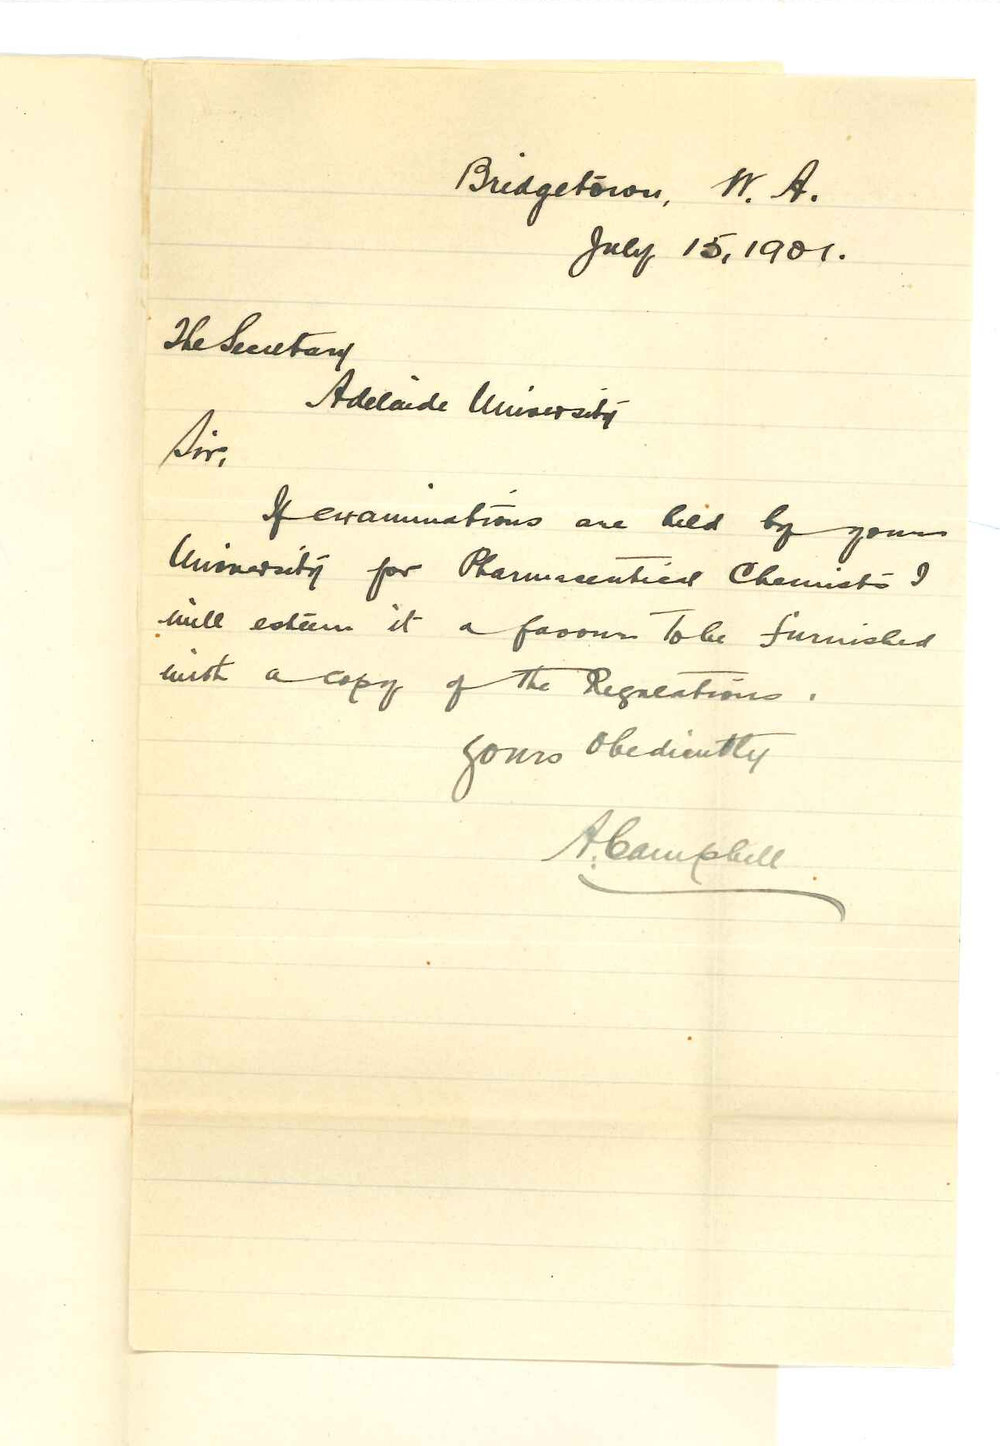 Bridgetown, W. A.
July 15, 1901.
The Secretary
Adelaide University
Sir,
If examinations are held by your
University for Pharmaceutical Chemists I
will esteem it a favour to be furnished
with a copy of the Regulations.
Yours Obediently
A. Campbell